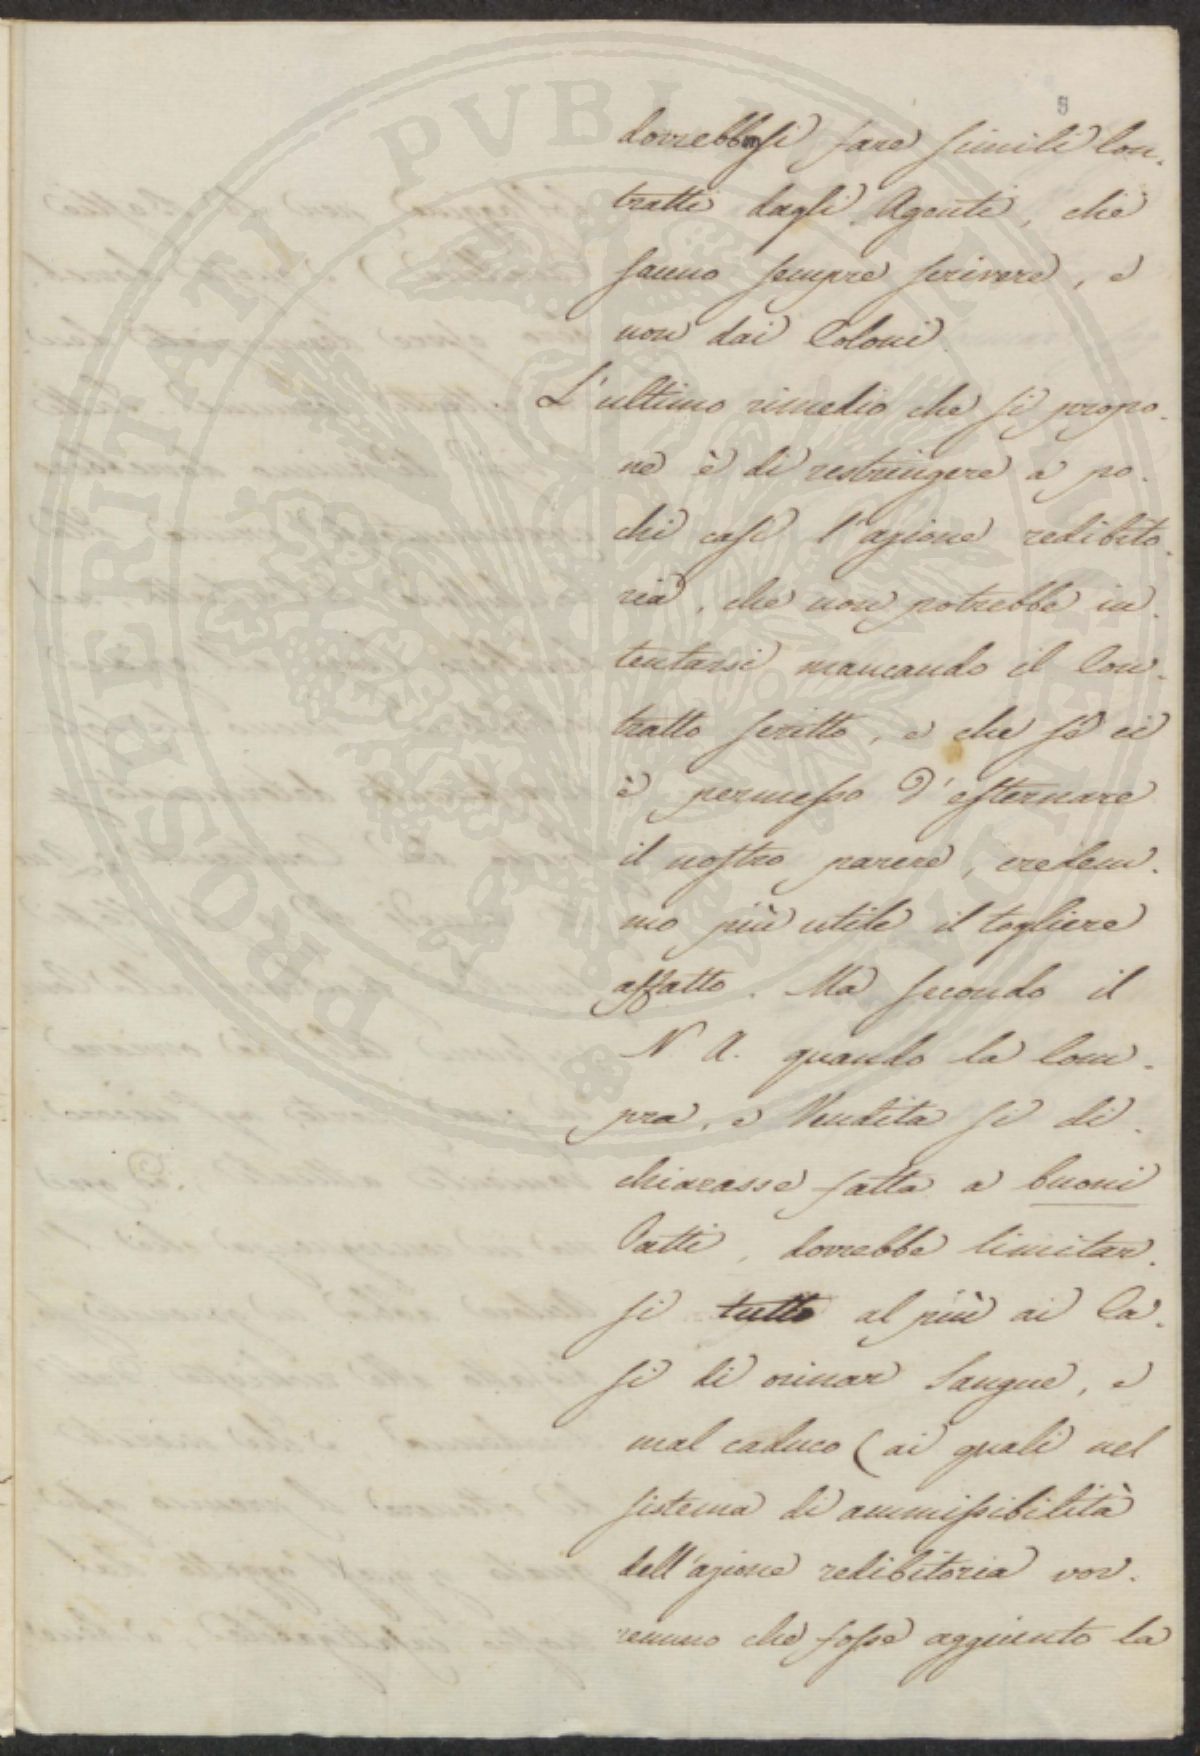 PROSPERITATI PVBLI
5
dovrebbesi fare simili Con-
tratti dagli Agenti, che
sanno sempre scrivere, e
non dai Coloni.
L'ultimo rimedio che si propo-
ne è di restringere a po-
chi casi l'azione redibito-
ria, che non potrebbe in-
tentarsi mancando il Con-
tratto scritto, e che se ci
è permesso d'esternare
il nostro parere, credem-
mo più utile il togliere
affatto. Ma secondo il
N. A. quando la Com-
pra, e Vendita si di-
chiarasse fatta a buoni
Patti, dovrebbe limitar-
si tutto al più ai Ca-
si di orinar Sangue, e
mal caduco (ai quali nel
sistema di ammissibilità
dell'azione redibitoria vor-
remmo che fosse aggiunto la